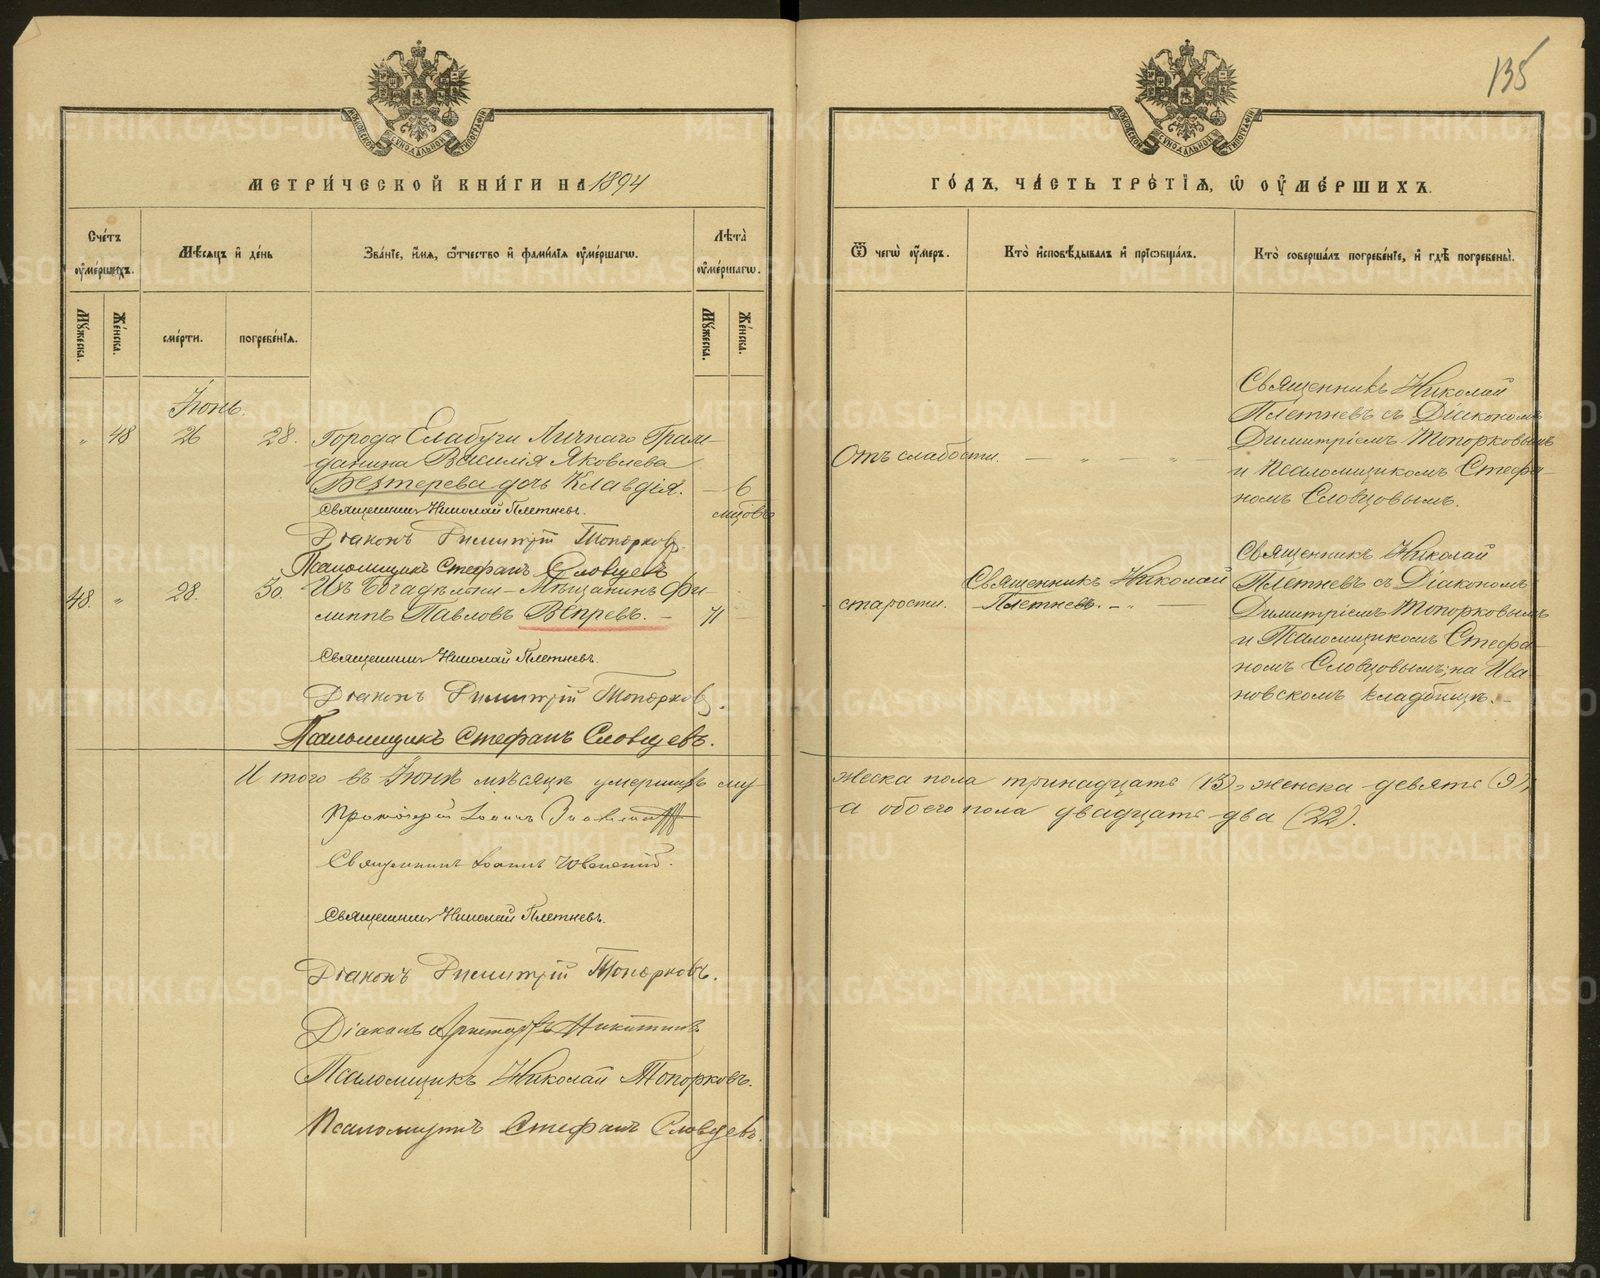 135
МЕТРИ́ЧЕСКОЙ КНИ́ГИ НА 1894
ГО́ДЪ, ЧА́СТЬ ТРЕ́ТІЯ, Ѽ ОУ҆МЕ́РШИХЪ.
Сче́тъ оу҆ме́ршихъ.
Мѣ́сяцъ и҆ де́нь
Зва́нїе, и҆́мя, ѻ҆́тчество и҆ фами́лїя оу҆ме́ршагѡ.
Лѣ́та оу҆ме́ршагѡ.
Ѿ чегѡ̀ оу҆́меръ.
Кто̀ и҆сповѣ́дывалъ и҆ прїѡбща́лъ.
Кто̀ соверша́лъ погребе́нїе, и҆ гдѣ̀ погребены̀.
Мꙋ́жеска.
Же́нска.
сме́рти.
погребе́нїя.
Мꙋ́жеска.
Же́нска.
Іюнь.
" 48 26 28. Города Елабуги Личнаго Граж-
данина Василія Яковлева
Бехтерева дочь Клавдія. — 6
мѣсцовъ
Священникъ Николай Плетневъ.
Діаконъ Димитрій Топорковъ.
Псаломщикъ Стефанъ Словцевъ
Отъ слабости. — " — " —
Священникъ Николай
Плетневъ съ Діакономъ
Димитріемъ Топорковымъ
и Псаломщикомъ Стефа-
номъ Словцовымъ.
48. " 28. 30. Изъ Богадѣльни - Мѣщанинъ Фи-
липпъ Павловъ Вепревъ. — 71 —
Священникъ Николай Плетневъ.
Діаконъ Димитрій Топорковъ.
Псаломщикъ Стефанъ Словцевъ.
старости.
Священникъ Николай
Плетневъ. — " —
Священникъ Николай
Плетневъ съ Діакономъ
Димитріемъ Топорковымъ
и Псаломщикомъ Стефа-
номъ Словцовымъ, на Ива-
новскомъ кладбищѣ. —
Итого въ Іюнѣ мѣсяцѣ умершихъ му-
жеска пола тринадцать (13), женска девять (9),
а обоего пола двадцать два (22).
Протоіерей Іоаннъ
Священникъ Іоаннъ
Священникъ Николай Плетневъ.
Діаконъ Димитрій Топорковъ.
Діаконъ Аристархъ Никитинъ
Псаломщикъ Николай Топорковъ.
Псаломщикъ Стефанъ Словцевъ.
METRIKI.GASO-URAL.RU